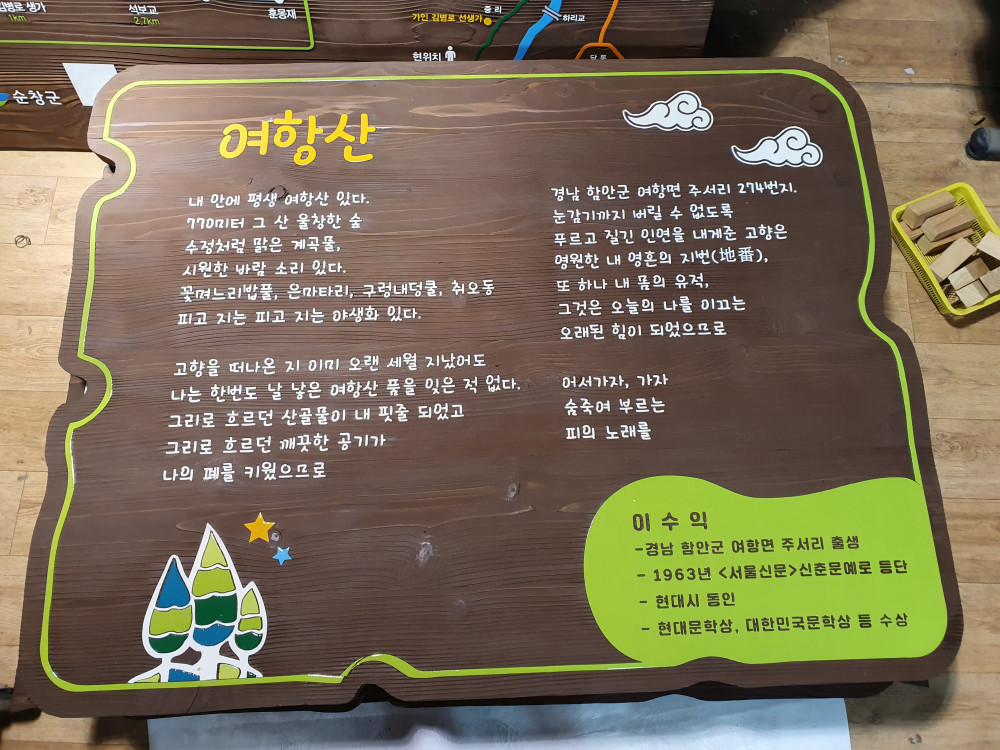 김병로 생가
1km
석보교
2.7km
훈몽재
중 리
가인 김병로 선생가
하리교
현위치
답 동
순창군
여항산
내 안에 평생 여항산 있다.
770미터 그 산 울창한 숲
수정처럼 맑은 계곡물,
시원한 바람 소리 있다.
꽃며느리밥풀, 은마타리, 구렁내덩쿨, 취오동
피고 지는 피고 지는 야생화 있다.
고향을 떠나온 지 이미 오랜 세월 지났어도
나는 한번도 날 낳은 여항산 품을 잊은 적 없다.
그리로 흐르던 산골물이 내 핏줄 되었고
그리로 흐르던 깨끗한 공기가
나의 폐를 키웠으므로
경남 함안군 여항면 주서리 274번지.
눈감기까지 버릴 수 없도록
푸르고 질긴 인연을 내게준 고향은
영원한 내 영혼의 지번(地番),
또 하나 내 몸의 유적,
그것은 오늘의 나를 이끄는
오래된 힘이 되었으므로
어서가자, 가자
숨죽여 부르는
피의 노래를
이 수 익
-경남 함안군 여항면 주서리 출생
- 1963년 <서울신문>신춘문예로 등단
- 현대시 동인
- 현대문학상, 대한민국문학상 등 수상